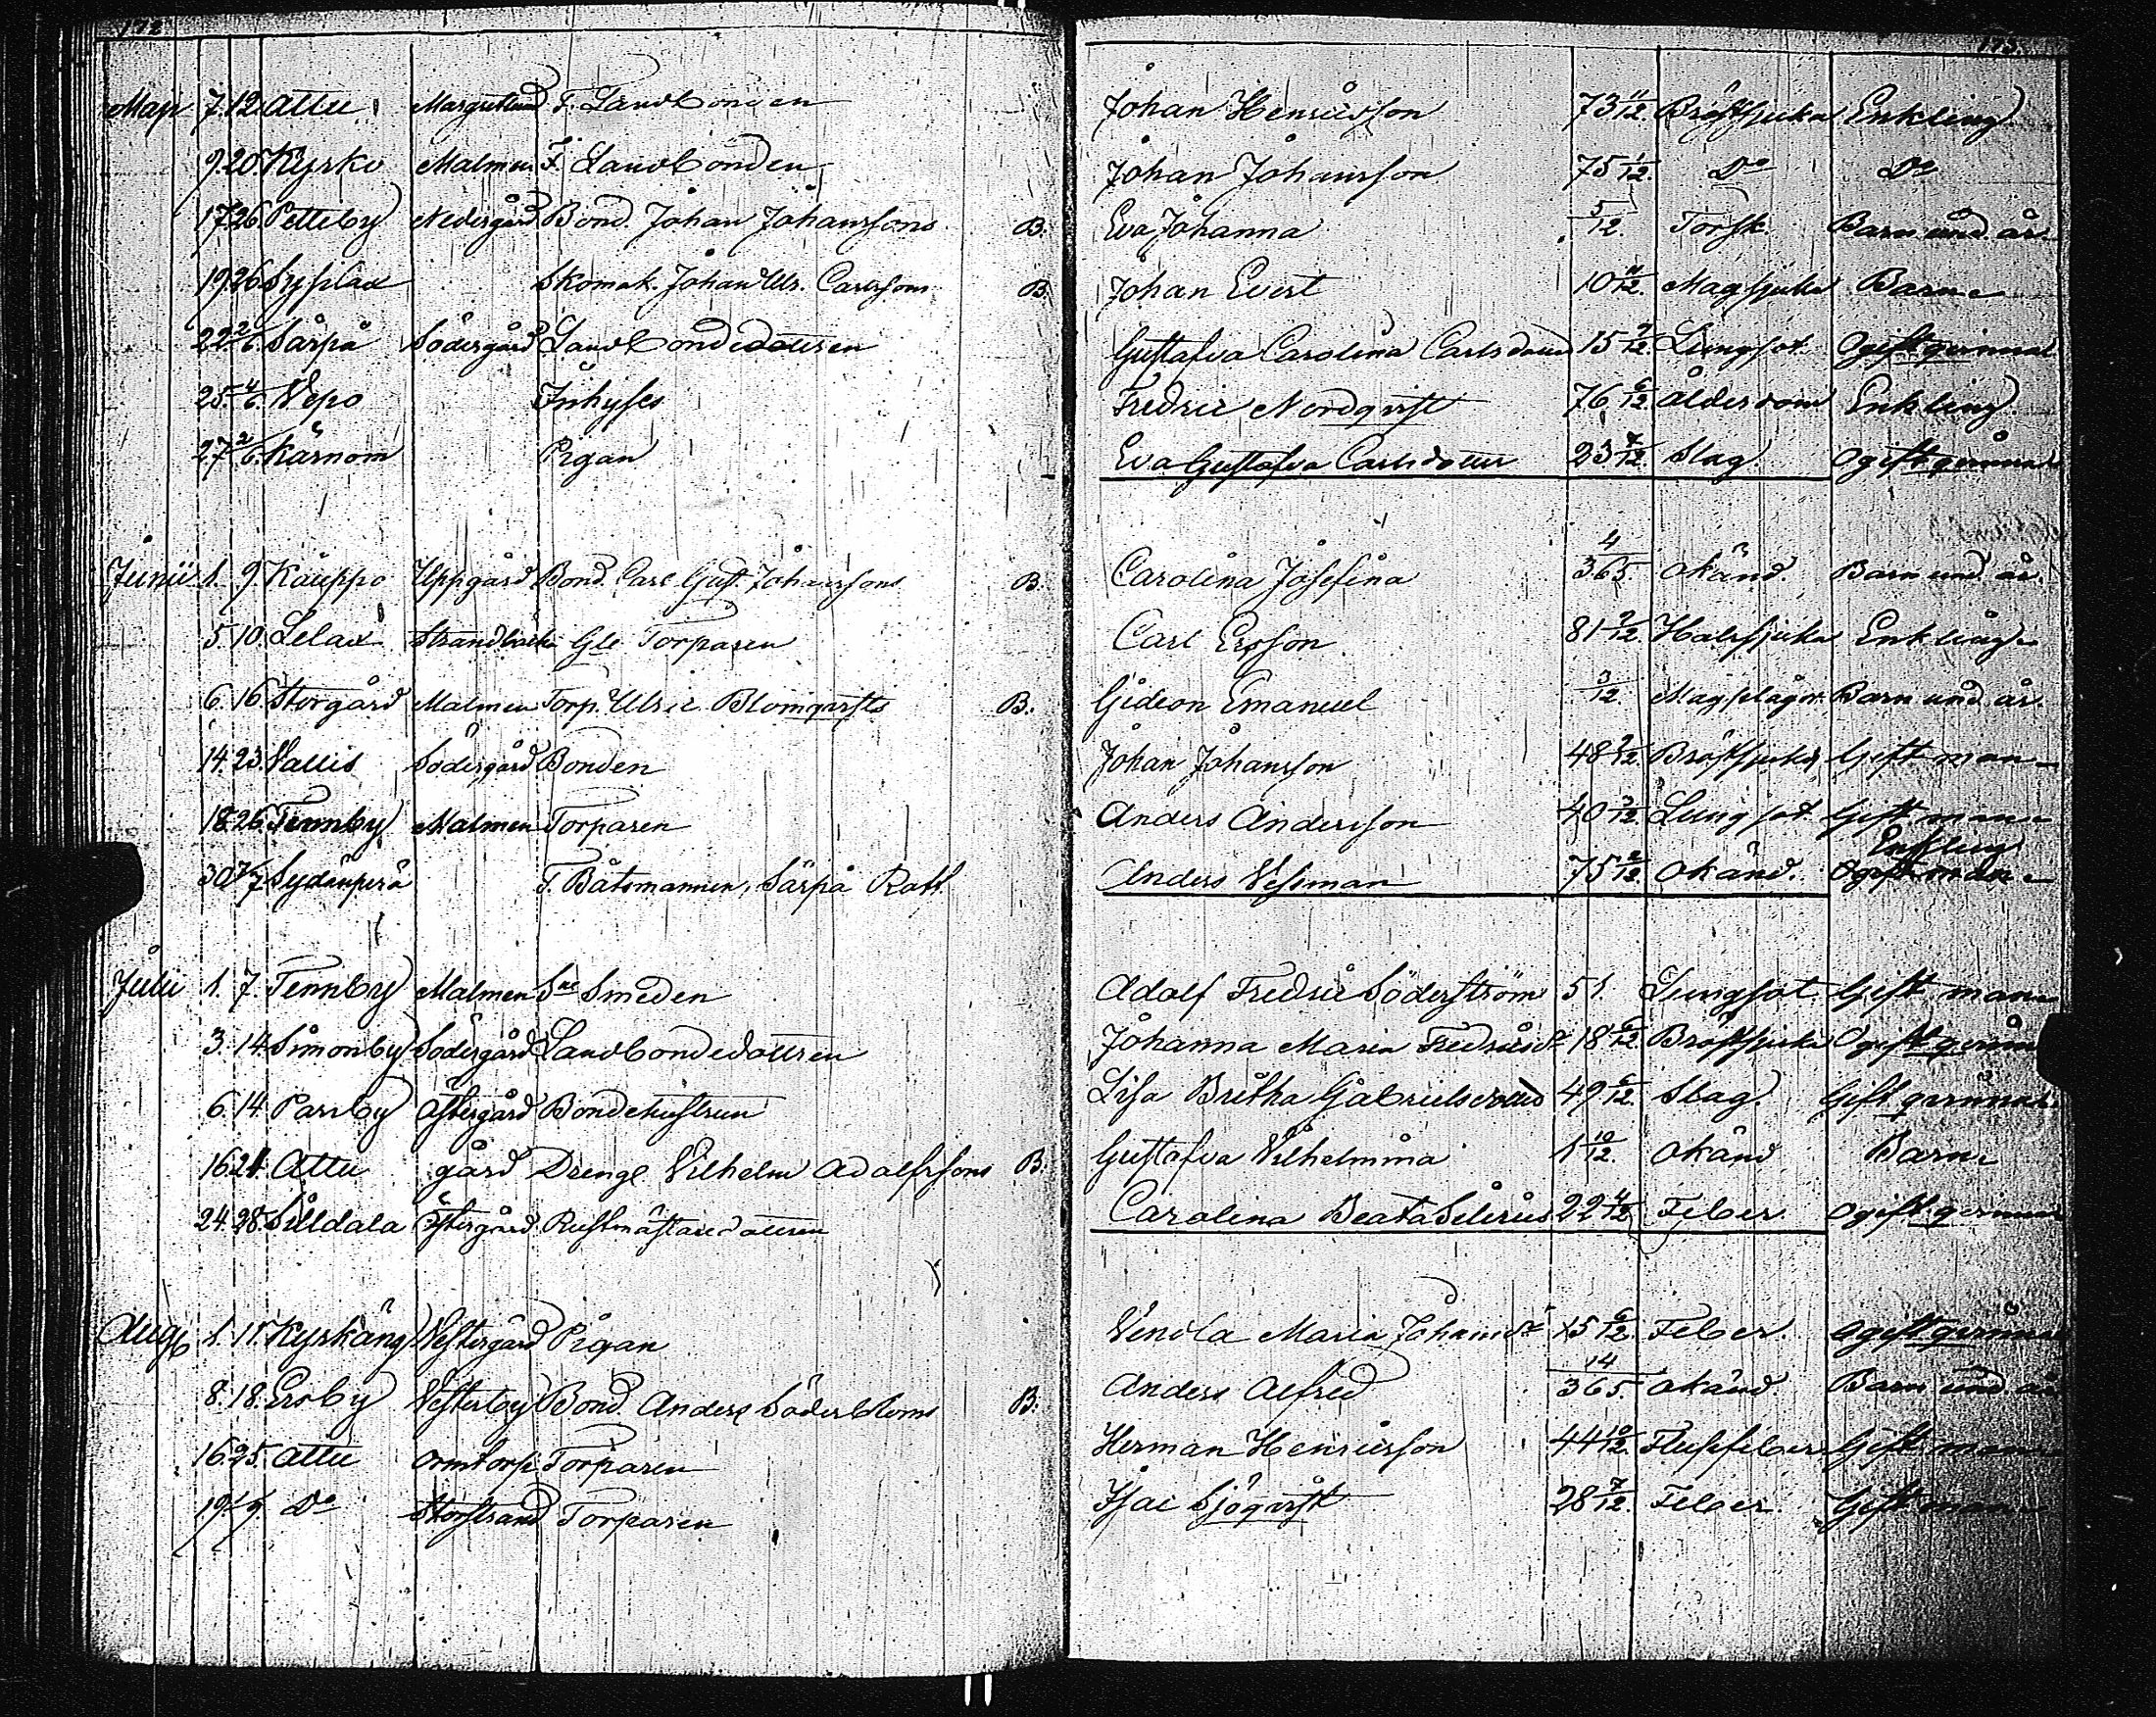 172
173.
Maji 7. 12. Attu Margretlund F. Landbonden Johan Henricsson 73 11/12. Bröstsjuka Enkling
9. 20. Kyrko Malmen F. Landbonden Johan Johansson 75 1/12. Do Do
17. 26. Petteby Nedergård Bond. Johan Johanssons B. Eva Johanna 5/12. Torsk. Barn und. år
19. 26. Sysilax Skomak. Johan Ulr. Carlssons B. Johan Evert 10 11/12. Magsjuka Barn
22. 2/6. Särpä Södergård Landbondedottren Gustafva Carolina Carlsdotter 15 7/12. Lungsot Ogift qvinna
25. 4/6. Wepo Inhyses Fredric Nordqvist 76 6/12. Ålderdom Enkling
27. 2/6. Kärnom Pigan Eva Gustafva Carlsdotter 23 7/12. Slag. Ogift qvinna
Junii 1. 9. Kauppo Uppgård Bond. Carl Gust. Johanssons B. Carolina Josefina 4/365. Okänd. Barn und. år.
5. 10. Lelax Strandbacka Gle Torparen Carl Ersson 81 9/12. Halssjuka Enkling
6. 16. Storgård Malmen Torp. Ulric Blomqvists B. Gideon Emanuel 3/12. Magplågor. Barn und. år.
14. 23. Vallis Södergård Bonden Johan Johansson 48 9/12. Bröstsjuka Gift man
18. 26. Tennby Malmen Torparen Anders Andersson 40 3/12. Lungsot Gift man
Enkling
30. 7/7 Sydänperä F. Båtsmannen, Särpä Rott. Anders Wessman 75 2/12. Okänd. Ogift man
Julii 1. 7. Tennby Malmen Sne Smeden Adolf Fredric Söderström 51. Lungsot Gift man
3. 14. Simonby Södergård Landbondedottren Johanna Maria Fredricsdr 18 6/12. Bröstsjuka Ogift qvinna
6. 14. Parsby Östergård Bondehustrun Lisa Britha Gabrielsdotter 49 6/12. Slag. Gift qvinna
16. 21. Attu gård Dreng. Wilhelm Adolfssons B. Gustafva Wilhelmina 1 10/12. Okänd Barn
24. 28. Silldala Östergård Rustmästaredottren Carolina Beata Silerius 22 4/12. Feber Ogift qvinna
Augi 1. 11. Kyrkäng Westergård Pigan Wendla Maria Johansdr 15 6/12. Feber. Ogift qvinna
8. 18. Ersby Westerby Bond. Anders Söderbloms B. Anders Alfred 14/365. Okänd Barn und. år
16. 25. Attu Ormtorp Torparen Herman Henricsson 44 10/12. Flussfeber Gift man
19. 1/9. Do Storstrand Torparen Isac Sjöqvist 28 7/12. Feber. Gift man